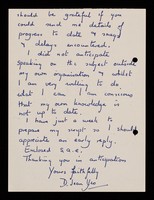 should be grateful if you
could send me details of
progress to date & snags
& delays encountered.
I did not anticipate
speaking on this subject outside
my own organisation & whilst
I am very willing to do
what I can I am conscious
that my own knowledge is
not up to date.
I have just a week to
prepare my script so I should
appreciate an early reply.
Enclosed s.a.e.
Thanking you in anticipation
Yours faithfully
D. Jean